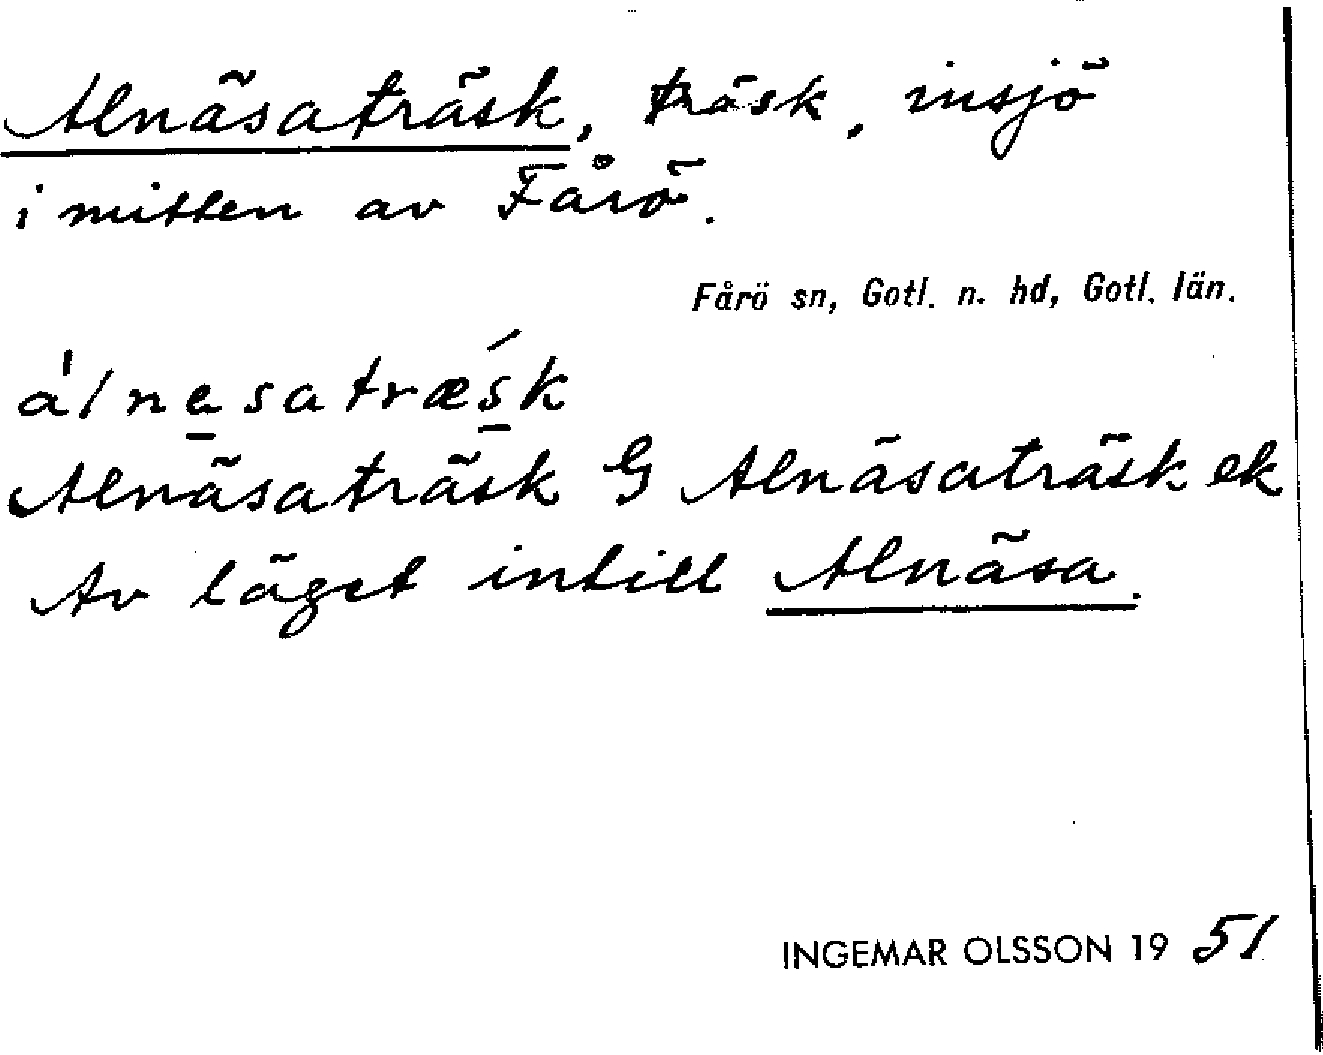 Alnäsaträsk, träsk, insjö
i mitten av Fårö.
Fårö sn, Gotl. n. hd, Gotl. län.
a'lnesatræsk
Alnäsaträsk G Alnäsaträsk ek
Av läget intill Alnäsa.
INGEMAR OLSSON 19 51